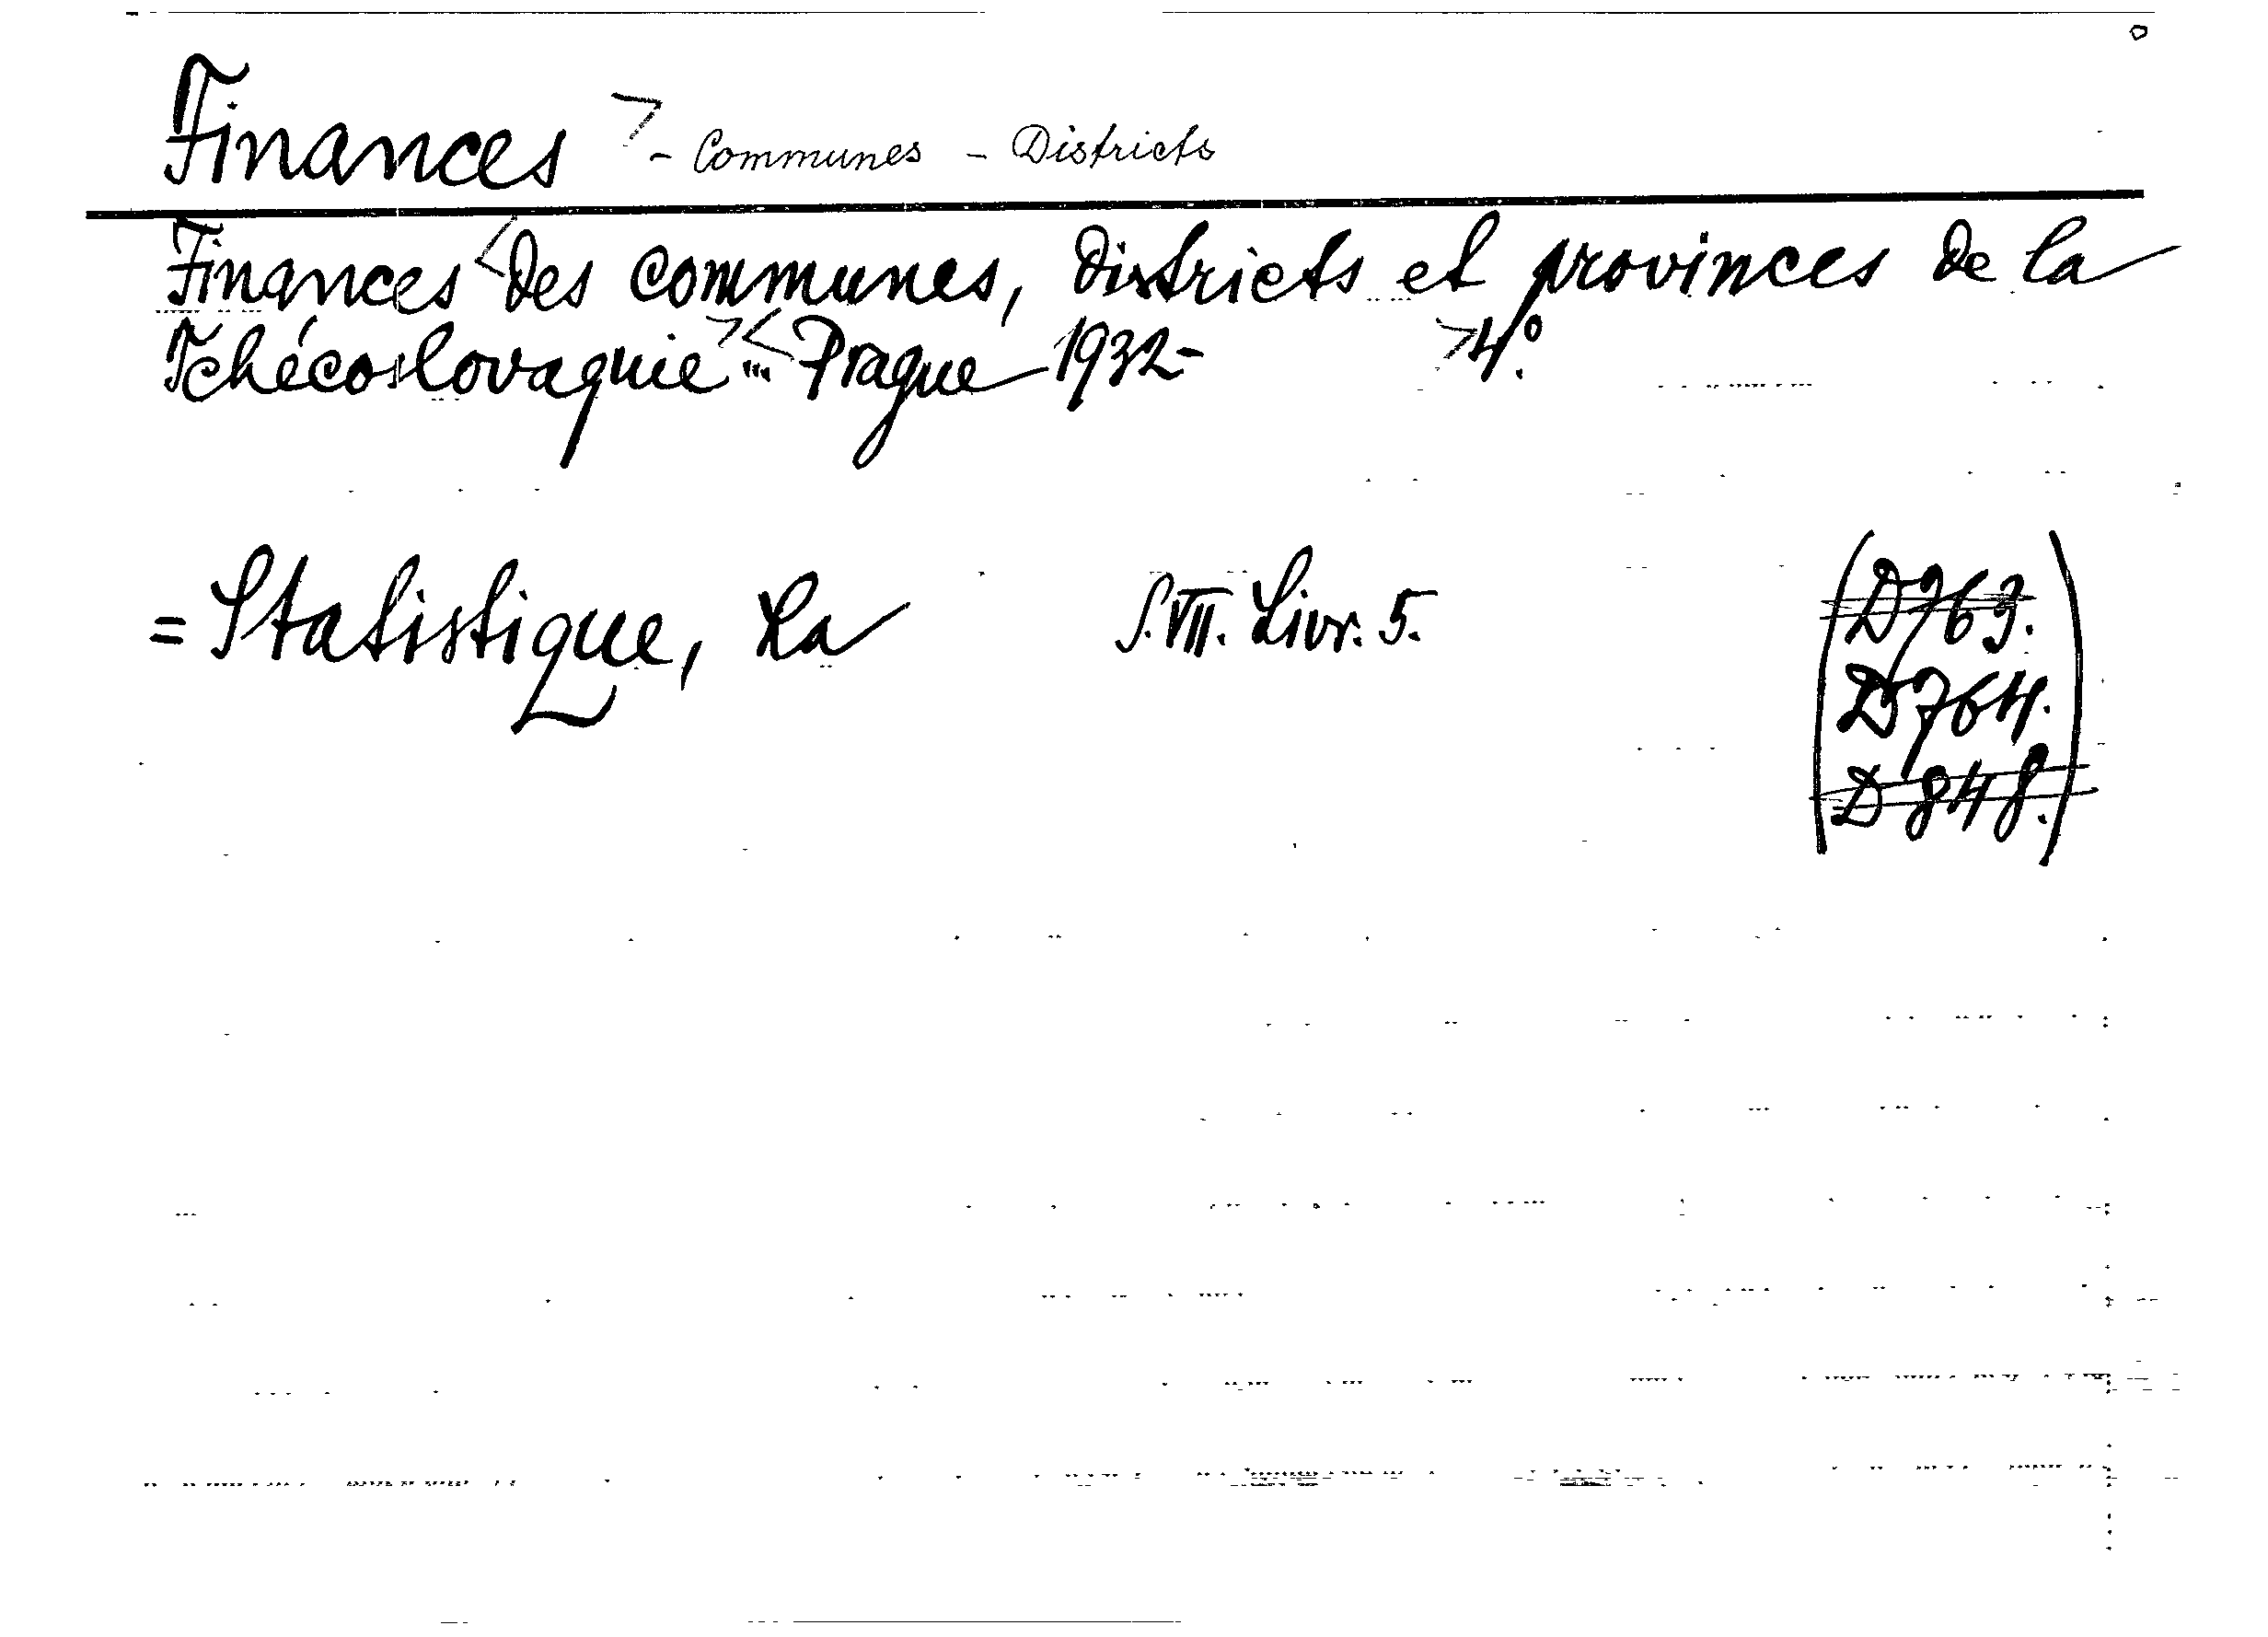 Finances - Communes - Districts
Finances des communes, districts et provinces de la
Tchécoslovaquie ... Prague 1932- 4°.
= Statistique, La S. VII. Livr. 5. (D 763.
D 764.
D 848.)